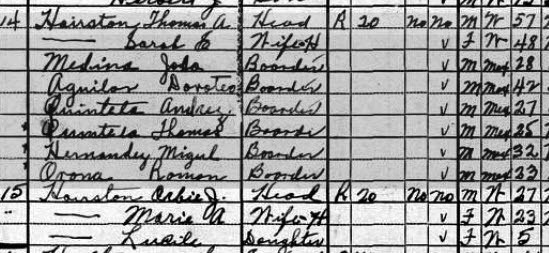 14 Hairston Thomas A Head R 20 no no M W 57
— Sarah E Wife-H v F W 48
Medina Boarder v M Mex 28
Aguilar Doroteo Boarder v M Mex 42
Quintela Andres Boarder v M Mex 27
Quintela Thomas Boarder v M Mex 25
Hernandez Migul Boarder v M Mex 32
Orona Roman Boarder v M Mex 33
15 Hairston Orbie J. Head R 20 no no M W 27
" — Marie A Wife-H v F W 23
— Lucile Daughter v F W 5